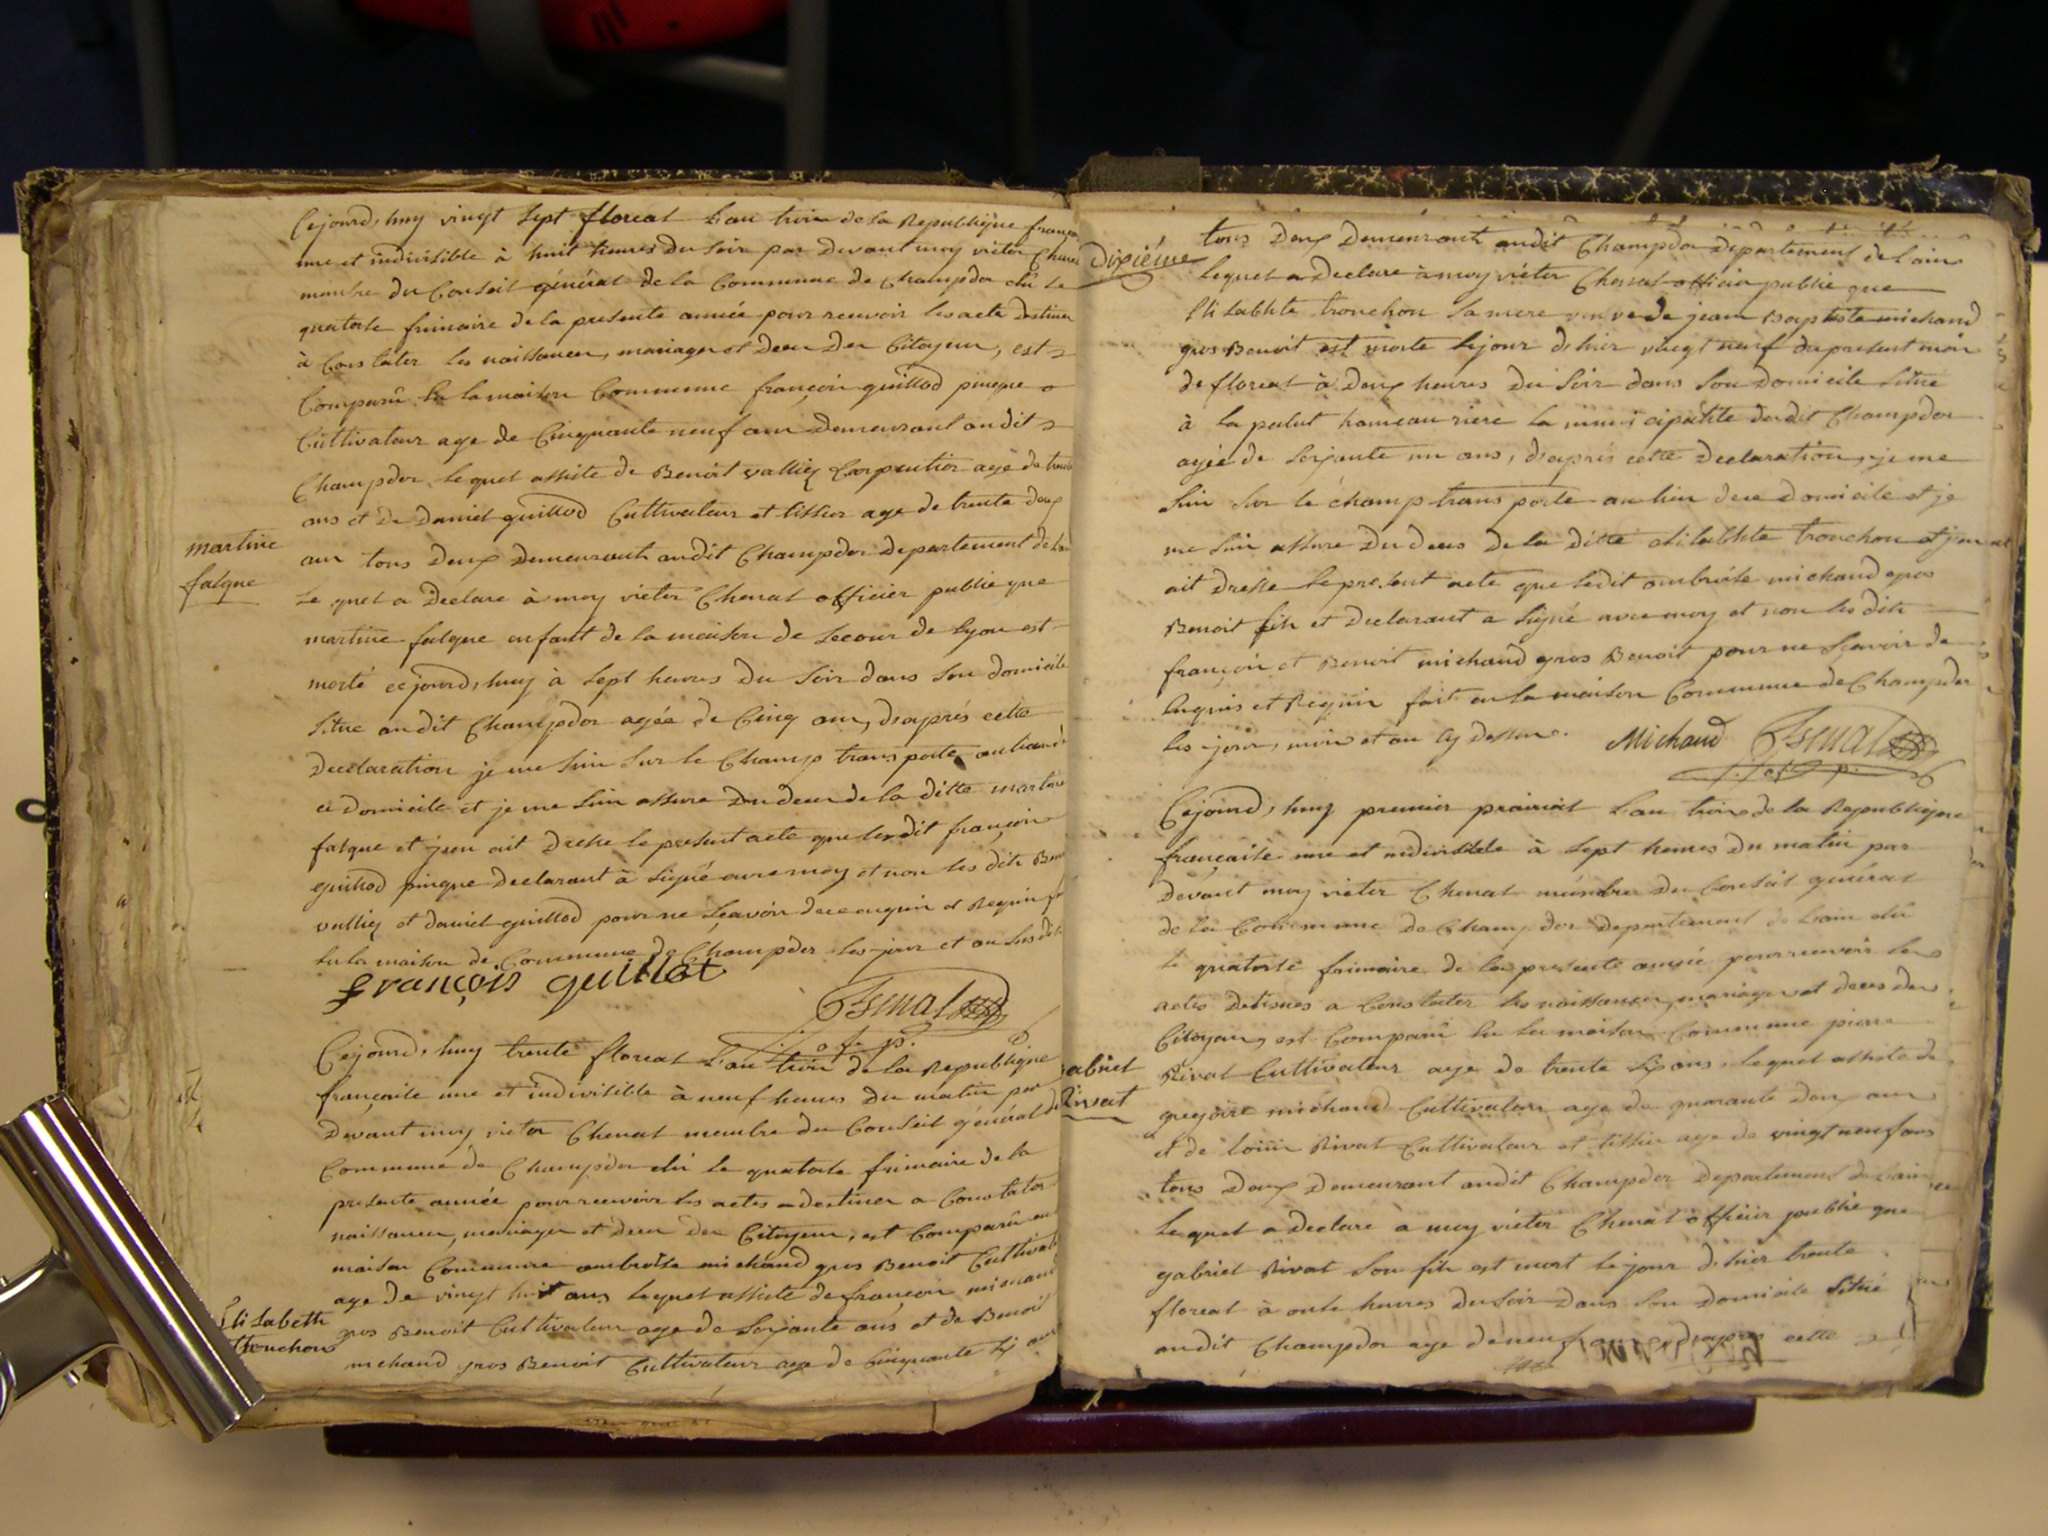 Cejourd,huy vingt sept floreal L'an trois de la Republique françai
une et indivisible à huit heures du soir par Devant moy victor Chenal
membre du Conseil général de la Commune de Champdor élu Le
quatorse frimaire de la presente année pour recevoir les acte destines
à Constater les naissances, mariages et deces des Citoyens, est
Comparû En la maison Commune françois guillod pinque
Cultivateur age de Cinquante neuf ans Demeurant audit
Champdor, lequel assiste de Benoit valliez Carpentier agé de trente
ans et de Daniel guillod Cultivateur et tissier age de trente deux
martine
falque
ans tous Deux Demeurants audit Champdor departement de Lain
Le quel a Declare à moy victor Chenal officier public que
martine falque enfant de la maison de secour de Lyon est
morte cejourd,huy à sept heures du soir dans son domicile
situé audit Champdor agée de Cinq ans, d'après cette
Declaration je me suis sur le Champ transporte au lieu de
ce domicile et je me suis assure du deces de la ditte martine
falque et j'en ait dresse le present acte que ledit françois
guillod pinque declarant à signé avec moy et non les dits Benoit
valliez et daniel guillod pour ne sçavoir de ce enquis et Requis fait
En la maison de Commune de Champdor les jour et an susdits
françois guillot
Chenal
o. f. p.
Cejourd,huy trente floreal L'an trois de la Republique
française une et indivisible à neuf heures du matin par
Devant moy victor Chenal membre du Conseil général de
Commune de Champdor élu le quatorse frimaire de la
presente année pour recevoir les actes a destines a Constater
naissances, mariages et deces des Citoyens, est Comparû en
maison Commune ambroise michaud gros Benoit Cultivat
age de vingt huit ans lequel assiste de françois michaud
Elisabeth
tronchon
gros Benoit Cultivateur age de soixante ans et de Benoit
michaud gros Benoit Cultivateur age de Cinquante six ans
Dixiéme
tous Deux Demeurants audit Champdor Departement de Lain
lequel a Declare à moy victor Chenal officier public que
Elisabhte tronchon sa mere veuve de jean Baptiste michaud
gros Benoit est morte le jour d'hier vingt neuf du present mois
de floreal à Deux heures du soir dans son Domicile situé
à la palut hameau riere la municipalité dudit Champdor
agée de soixante un ans, d'aprés cette Declaration, je me
suis sur le champ transporte au lieu de ce domicile et je
me suis assure du deces de la ditte elisabhte tronchon et j'en
ait dresse le present acte que ledit ambroise michaud gros
Benoit fils et declarant a signé avec moy et non les dits
françois et Benoit michaud gros Benoit pour ne sçavoir de
Enquis et Requis fait en la maison Commune de Champdor
les jour, mois et an cy dessus. Michaud Chenal
o. f. p.
Cejourd,huy premier prairial L'an trois de la Republique
française une et indivisible à sept heures du matin par
Devant moy victor Chenal membre du Conseil général
de la Commune de Champdor Departement de Lain élu
le quatorse frimaire de la presente année pour recevoir les
actes destines a Constater les naissances, mariages et deces des
Citoyens, est Comparû En la maison Commune pierre
gabriel
Rivat
Rivat Cultivateur age de trente six ans, lequel assiste de
gregoire michaud Cultivateur age de quarante Deux ans
et de louis Rivat Cultivateur et tissier age de vingt neuf ans
tous Deux Demeurant audit Champdor Departement de Lain
Lequel a declare à moy victor Chenal officier public que
gabriel Rivat son fils est mort le jour d'hier trente
floreal à onse heures du soir dans son domicile situé
audit Champdor age de neuf ans d'apres cette